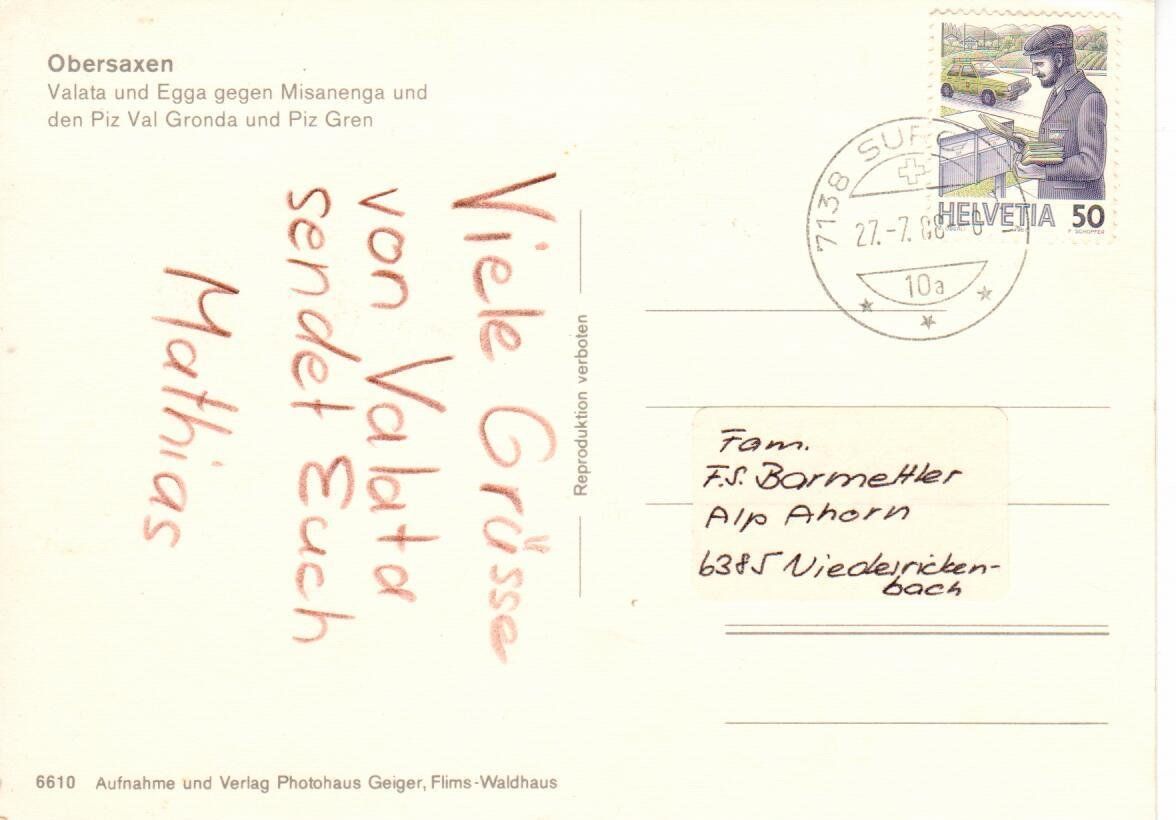 Obersaxen
Valata und Egga gegen Misanenga und
den Piz Val Gronda und Piz Gren
Viele Grüsse
von Valata
sendet Euch
Mathias
Reproduktion verboten
7138
27.-7.88
10a
HELVETIA 50
Fam.
F.S. Barmettler
Alp Ahorn
6385 Niederricken-
bach
6610 Aufnahme und Verlag Photohaus Geiger, Flims-Waldhaus